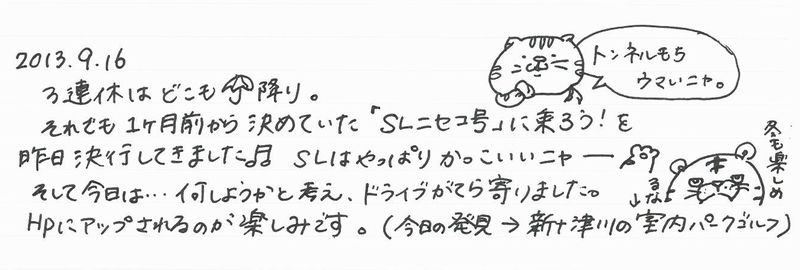 2013.9.16
3連休はどこも☂降り。
それでも1ヶ月前から決めていた「SLニセコ号」に乗ろう!を
昨日決行してきました♬ SLはやっぱりかっこいいニャー
そして今日は…何しようかと考え、ドライブがてら寄りました。
HPにアップされるのが楽しみです。(今日の発見→新十津川の室内パークゴルフ)
トンネルもち
ウマいニャ。
冬も楽しめ
るな→